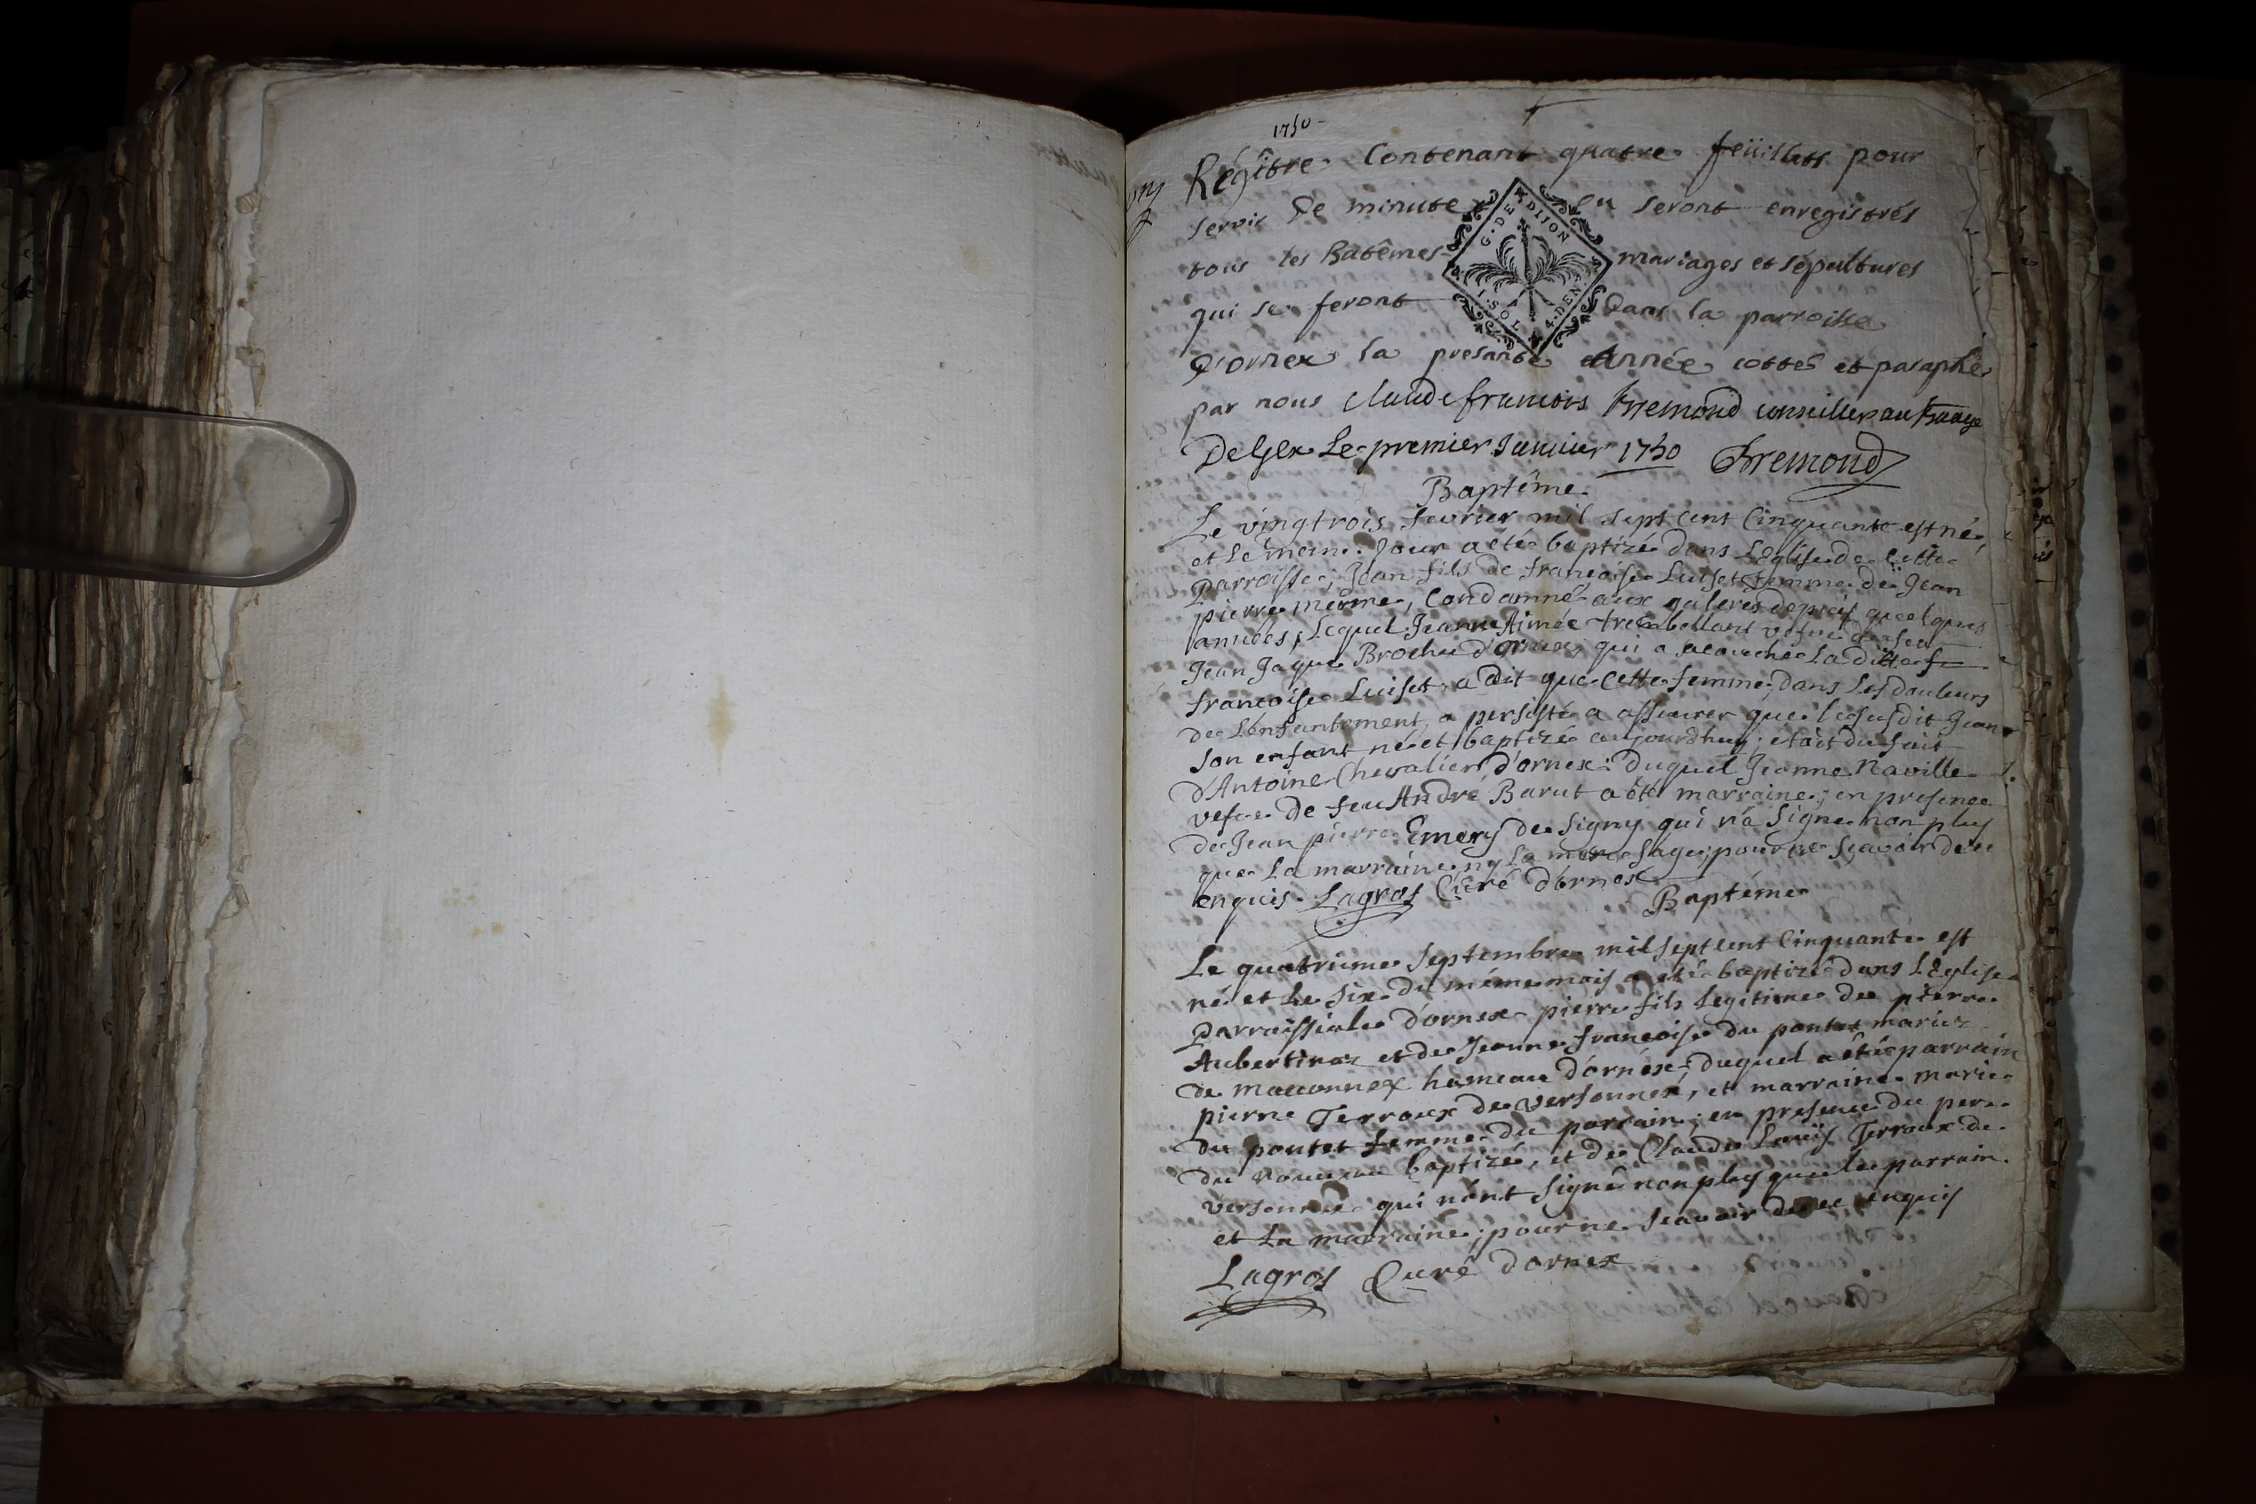 1750
Régître Contenant quatre feüillets pour
servir De minute ou seront enregistrés
tous les Batêmes mariages et sépultures
qui se feront Dans la parroisse
D'ornex la presante Année cottés et paraphé
par nous claude francois fremond conseiller au
De Gex Le premier Janvier 1750 fremond
G. DE DIJON
Baptême
Le vingtrois fevrier mil sept cent Cinquante est né,
et le mem. Jour a eté baptizé dans L'eglise de cette
Parroisse, Jean fils de françoise Luiset femme de Jean
pierre merme, Condamné aux galeres depuis quelques
années, Lequel Jeanne Aimée vefve de feu
Jean Jaque Brochu d'ornex, qui a acouchée La ditte
francoise Luiset, a dit que cette femme, dans Les douleurs
de L'enfantement, a persisté a assurer que le susdit Jean
son enfant né et baptizé aujourdhuy, etoit du fait
d'Antoine Chevalier d'ornex: duquel Jeanne Naville
vefve de feu André Barut a eté marraine, en presence
de Jean pierre Emery de Signy qui n'a signé non plus
que La marraine ny La mere sage, pour ne scavoir de ce
enquis. Lagros Curé d'ornex
Baptéme
Le quatrieme Septembre mil sept cent Cinquante est
né et Le six du méme mois a eté baptizé dans L'Eglise
Parroissiale d'ornex pierre fils legitime de pierre
Aubertinaz et de Jeanne francoise du pontet mariez
de maconnex hameau d'ornéx, duquel a eté parrain
pierre Terroux de versonnex, et marraine marie
du pontet femme du parrain, en presence du pere
du nouveau baptizé, et de Claude Louïs Terroux de
versonnex qui n'ont signé non plus que le parrain
et La marraine, pour ne scavoir de ce enquis
Lagros Curé d'ornex